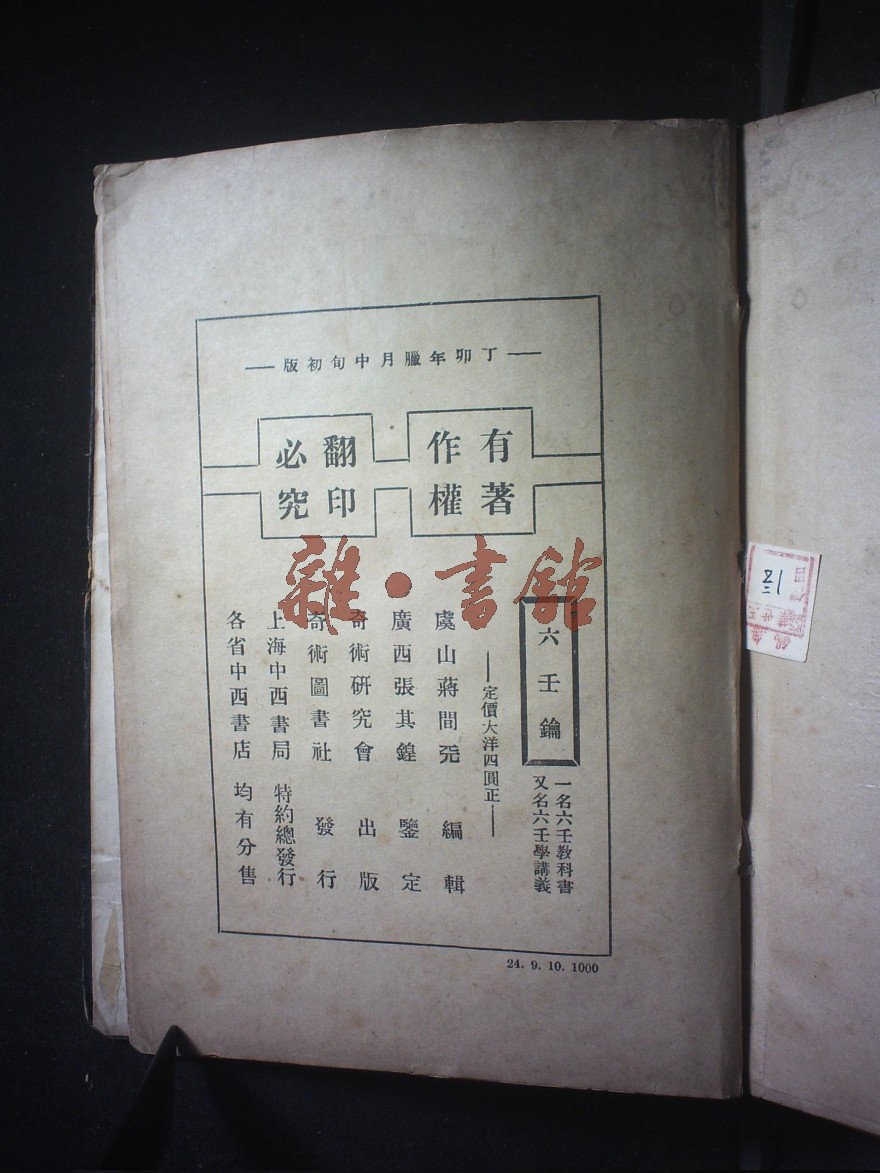 丁卯年臘月中旬初版
有著作權
翻印必究
六壬鑰
一名六壬教科書
又名六壬學講義
定價大洋四圓正
虞山蔣問兂 編輯
廣西張其鍠 鑒定
奇術研究會 出版
奇術圖書社 發行
上海中西書局 特約總發行
各省中西書店 均有分售
24. 9. 10. 1000
雜·書館